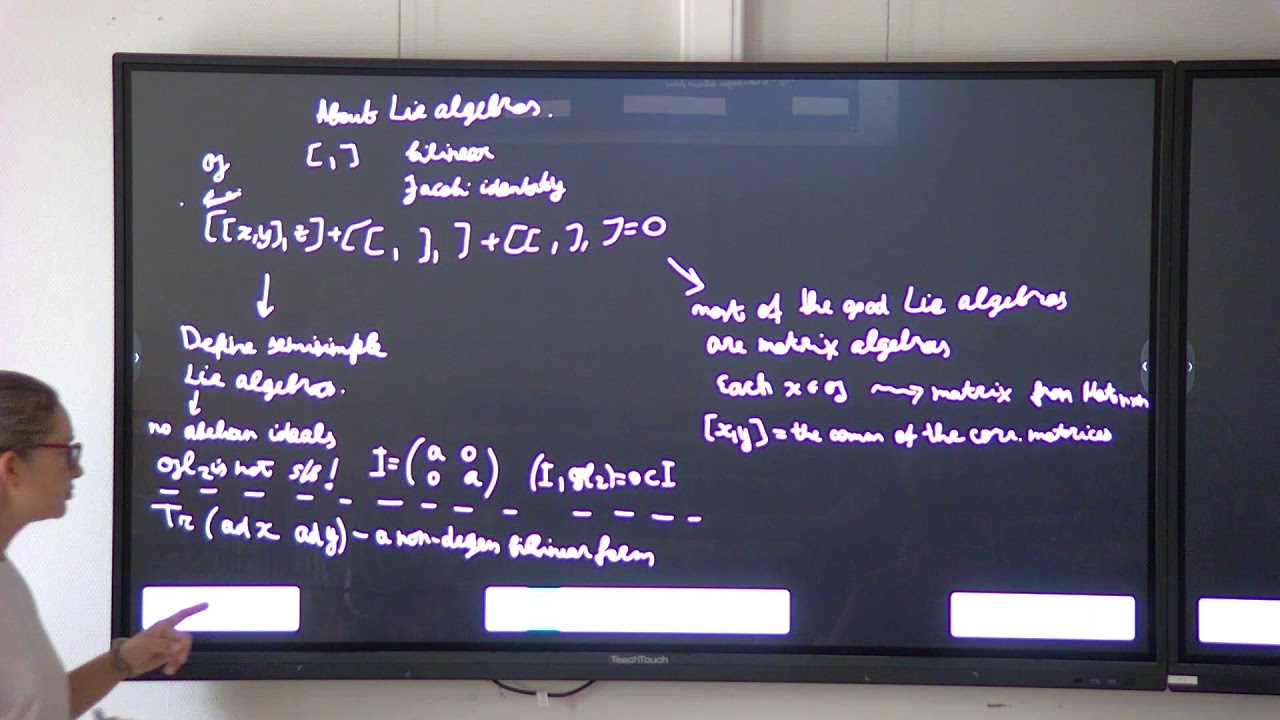 About Lie algebras.
𝔤 [ , ] bilinear
Jacobi identity
[[x,y], z]+[[ , ], ] + [[ , ], ]=0
↓
Define semisimple
Lie algebras.
↓
no abelian ideals
𝔤l₂ is not s/s! I=(a 0 0 a) (I, gl₂)=0⊂I
Tr (ad x ad y) – a non-degen bilinear form
↘
most of the good Lie algebras
are matrix algebras
Each x ∈ 𝔤 ⟿ matrix from Mat n×n
[x,y] = the comm of the corr. matrices
TeachTouch